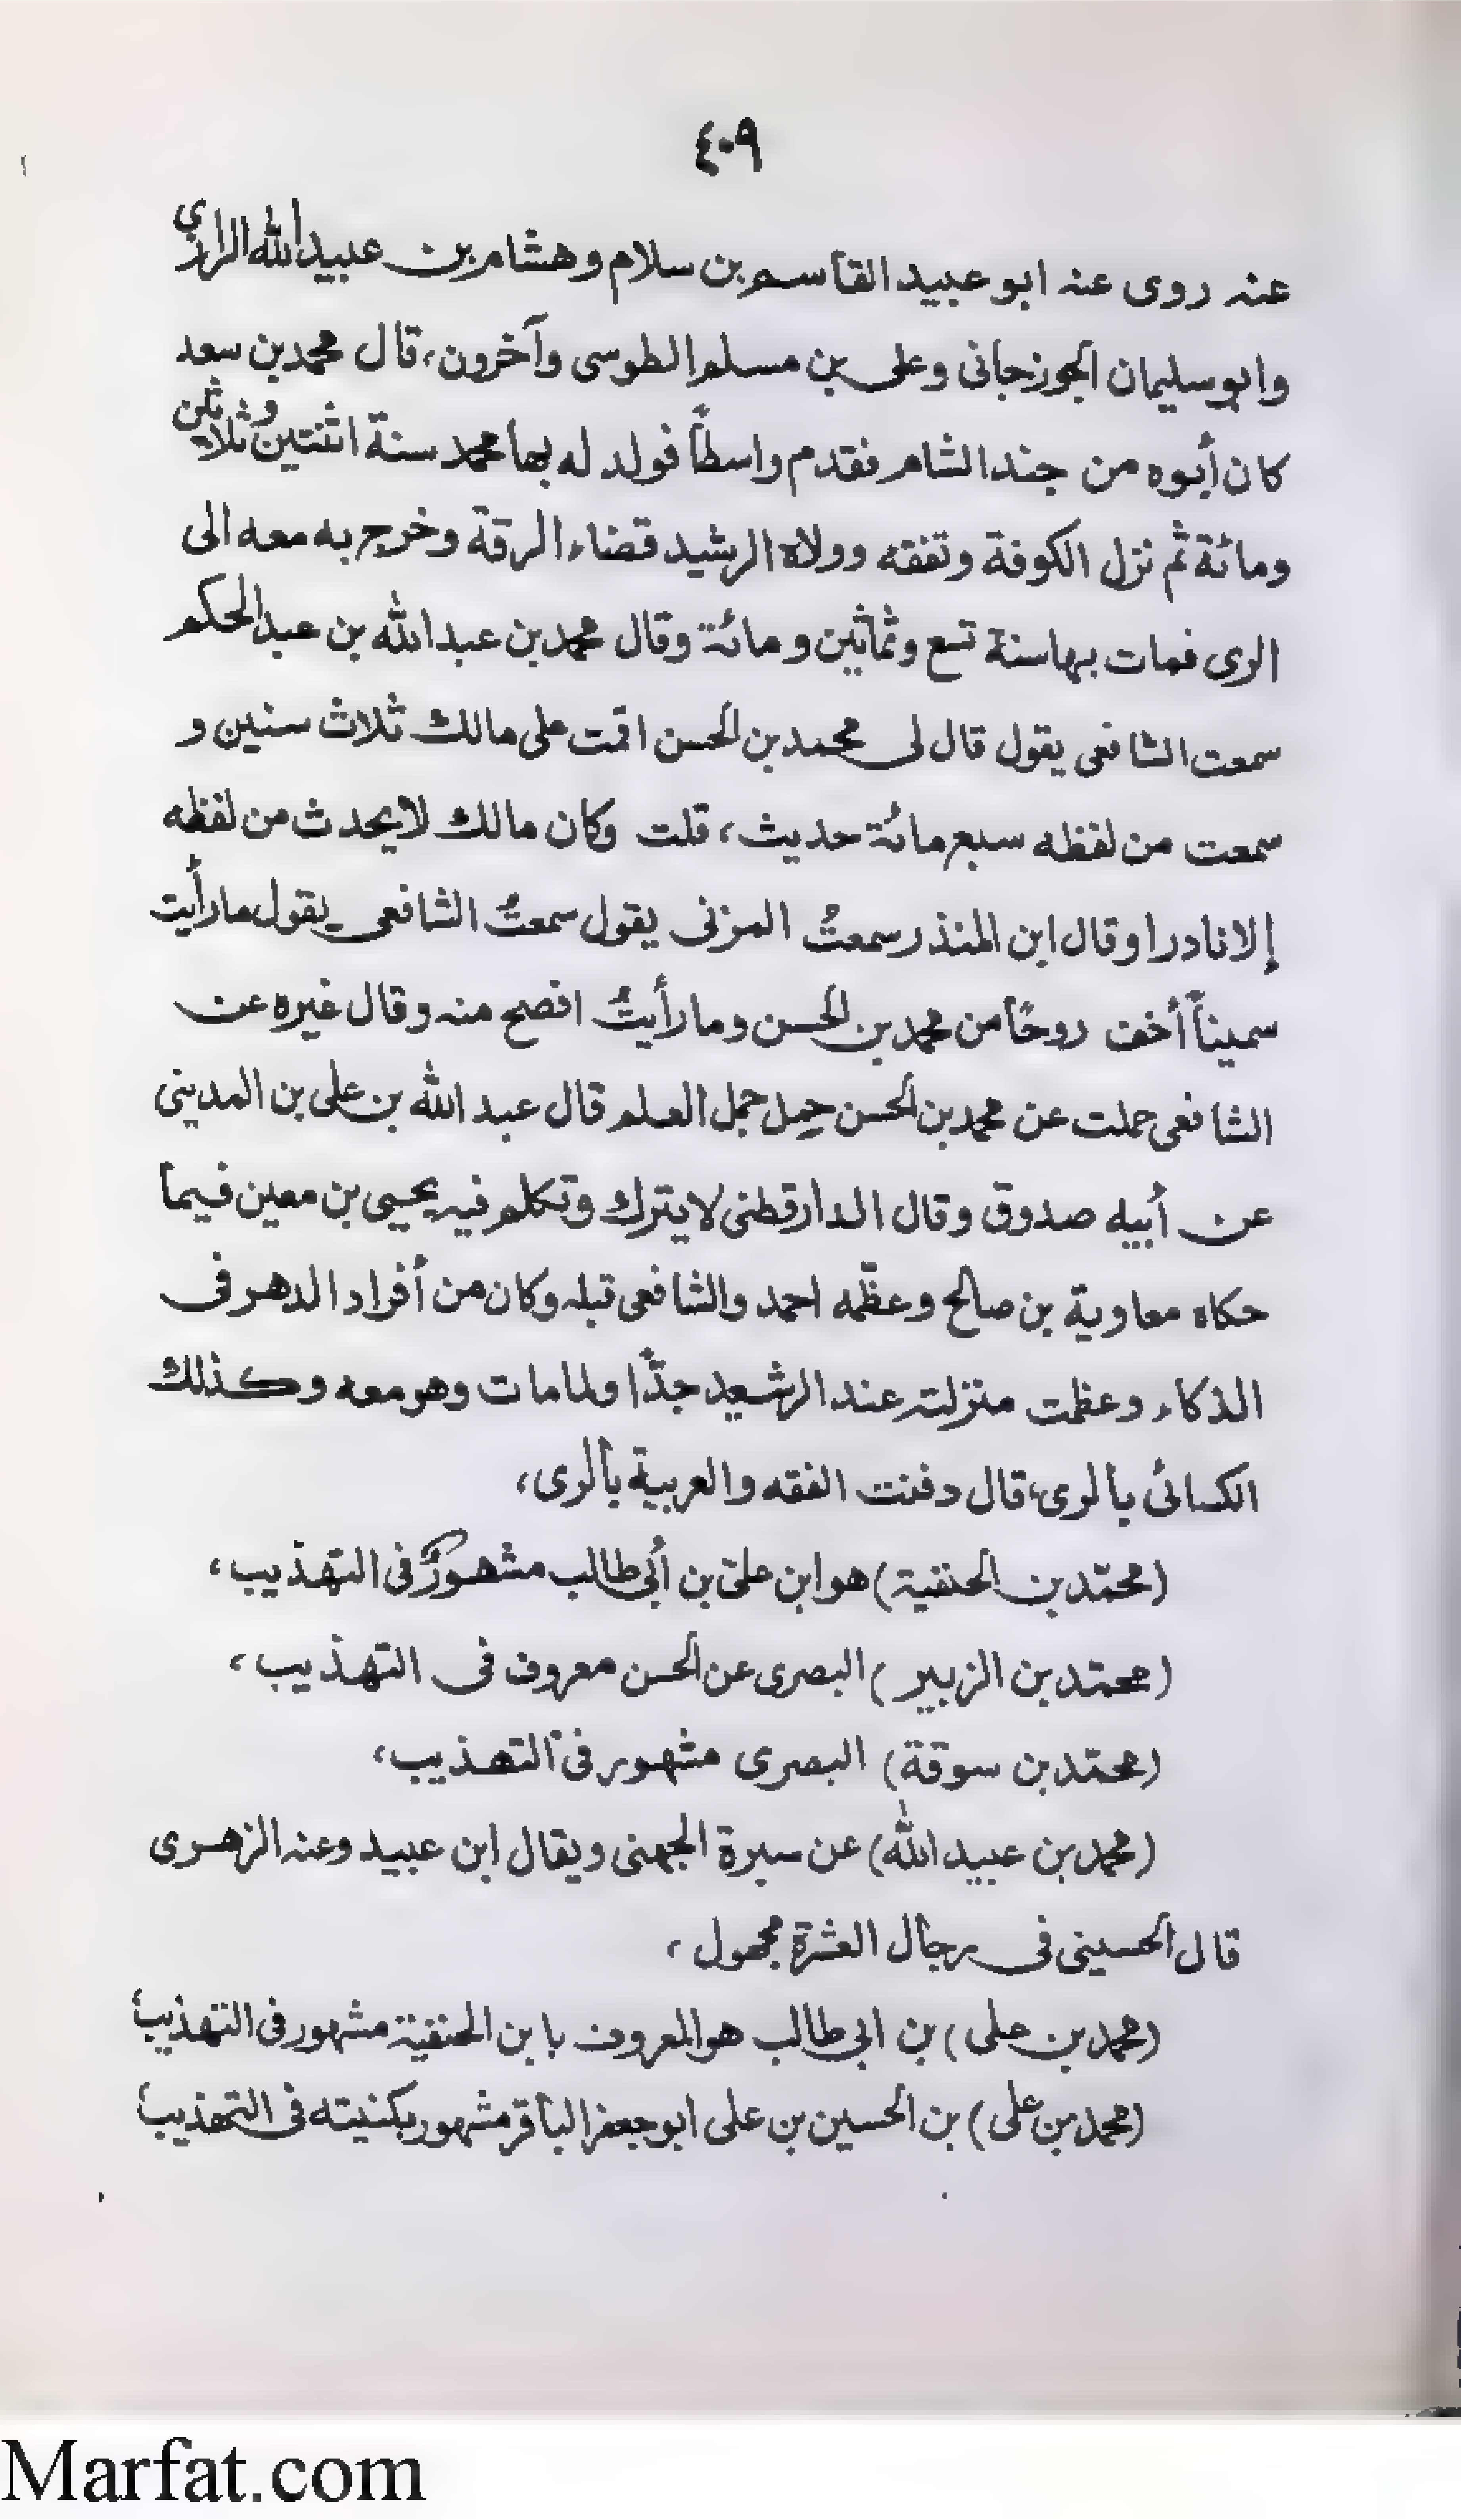 ٤٠٩
عنه روى عنه ابو عبيد القاسم بن سلام وهشام بن عبيد الله الرازي
وابو سليمان الجوزجانى وعلى بن مسلم الطوسى وآخرون، قال محمد بن سعد
كان أبوه من جند الشام فقدم واسطاً فولد له بها محمد سنة اثنتين وثلاثين
ومائة ثم نزل الكوفة وتفقه وولاه الرشيد قضاء الرقة وخرج به معه الى
الرى فمات بها سنة تسع وثمانين ومائة وقال محمد بن عبد الله بن عبد الحكم
سمعت الشافعى يقول قال لى محمد بن الحسن اقمت على مالك ثلاث سنين و
سمعت من لفظه سبع مائة حديث، قلت وكان مالك لا يحدث من لفظه
إلا نادرا وقال ابن المنذر سمعتُ المزنى يقول سمعتُ الشافعى يقول ما رأيت
سميناً أخف روحًا من محمد بن الحسن وما رأيتُ افصح منه وقال غيره عن
الشافعى حملت عن محمد بن الحسن حِمل جمل العلم قال عبد الله بن على بن المدينى
عن أبيه صدوق وقال الدارقطنى لا يترك وتكلم فيه يحيى بن معين فيما
حكاه معاوية بن صالح وعظّمه احمد والشافعى قبله وكان من أفراد الدهر فى
الذكاء وعظمت منزلته عند الرشيد جدًّا ولما مات وهو معه وكذلك
الكسائى بالرى، قال دفنت الفقه والعربية بالرى،
(محمّد بن الحنفية) هو ابن على بن أبى طالب مشهورٌ فى التهذيب،
(محمّد بن الزبير) البصرى عن الحسن معروف فى التهذيب،
(محمّد بن سوقة) البصرى مشهور فى التهذيب،
(محمد بن عبيد الله) عن سبرة الجهنى ويقال ابن عبيد وعنه الزهرى
قال الحسينى فى رجال العشرة مجهول،
(محمد بن على) بن ابى طالب هو المعروف بابن الحنفية مشهور فى التهذيب،
(محمد بن على) بن الحسين بن على ابو جعفر الباقر مشهور بكنيته فى التهذيب،
Marfat.com